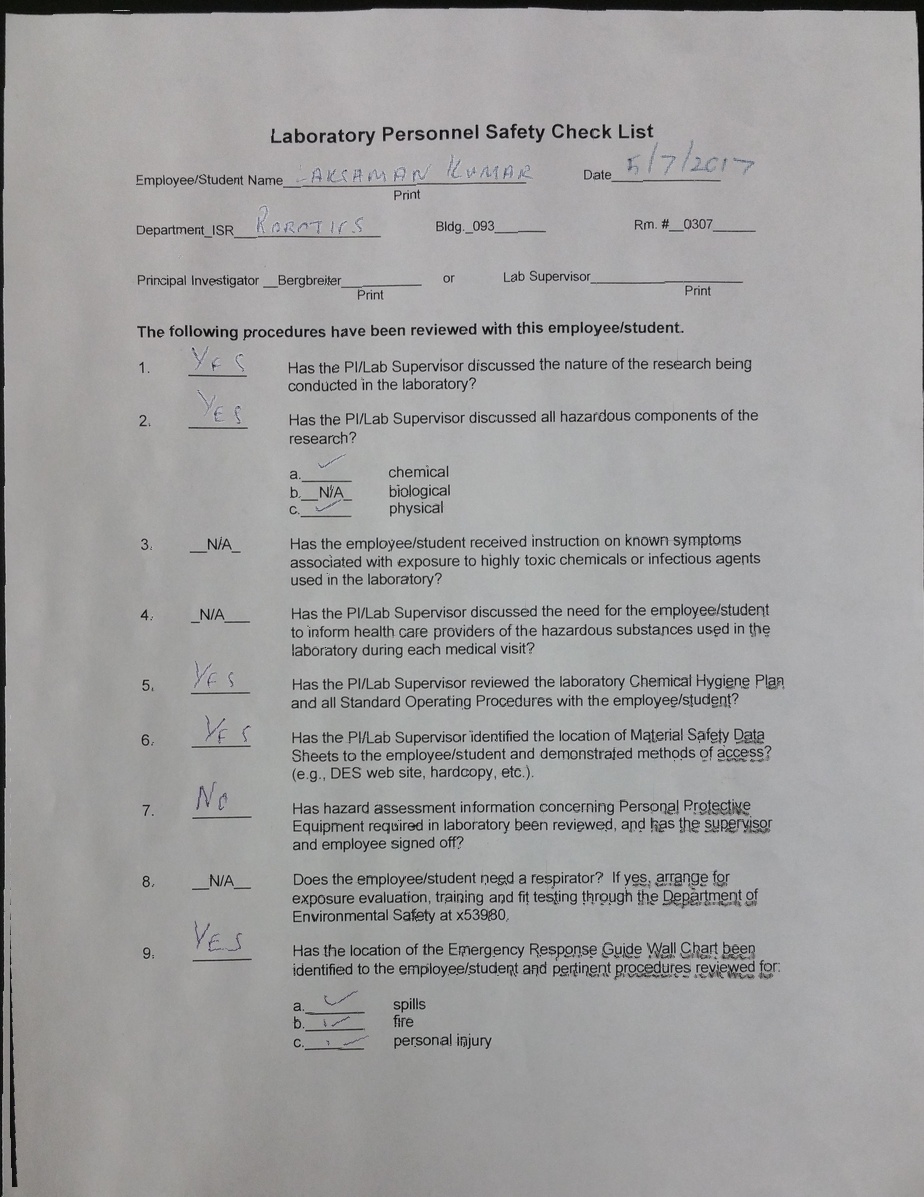 Laboratory Personnel Safety Check List
Employee/Student Name AKSAMAN KUMAR Date 5/7/2017
Print
Department_ISR ROBOTICS Bldg._093 Rm. #__0307
Principal Investigator __Bergbreiter or Lab Supervisor
Print Print
The following procedures have been reviewed with this employee/student.
1. YES Has the PI/Lab Supervisor discussed the nature of the research being
conducted in the laboratory?
2. YES Has the PI/Lab Supervisor discussed all hazardous components of the
research?
a. ✓ chemical
b. N/A biological
c. ✓ physical
3. N/A Has the employee/student received instruction on known symptoms
associated with exposure to highly toxic chemicals or infectious agents
used in the laboratory?
4. N/A Has the PI/Lab Supervisor discussed the need for the employee/student
to inform health care providers of the hazardous substances used in the
laboratory during each medical visit?
5. YES Has the PI/Lab Supervisor reviewed the laboratory Chemical Hygiene Plan
and all Standard Operating Procedures with the employee/student?
6. YES Has the PI/Lab Supervisor identified the location of Material Safety Data
Sheets to the employee/student and demonstrated methods of access?
(e.g., DES web site, hardcopy, etc.).
7. No Has hazard assessment information concerning Personal Protective
Equipment required in laboratory been reviewed, and has the supervisor
and employee signed off?
8. N/A Does the employee/student need a respirator? If yes, arrange for
exposure evaluation, training and fit testing through the Department of
Environmental Safety at x53980.
9. YES Has the location of the Emergency Response Guide Wall Chart been
identified to the employee/student and pertinent procedures reviewed for:
a. ✓ spills
b. ✓ fire
c. ✓ personal injury